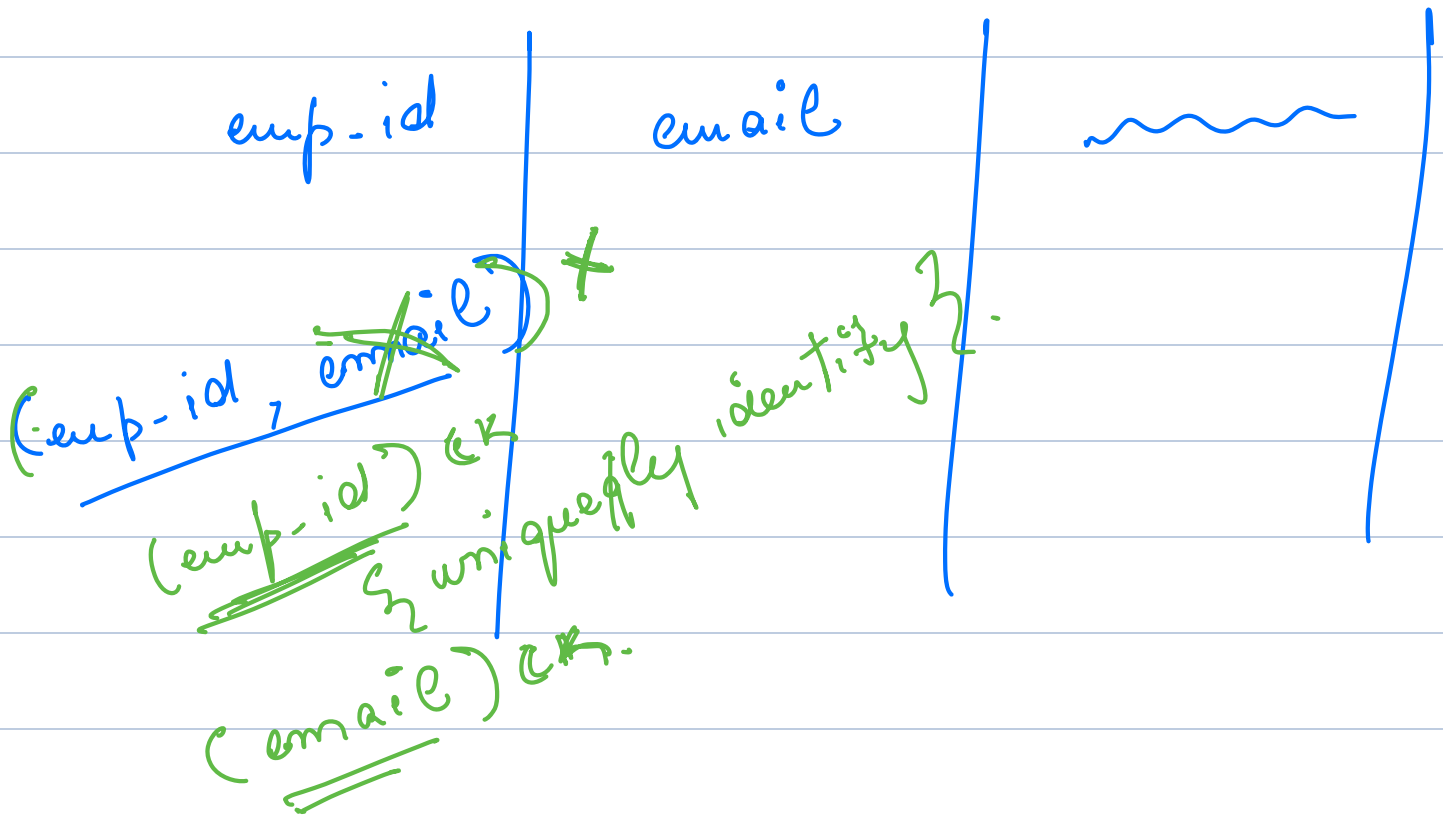 emp-id email
(emp-id, email)
(emp-id) CK
{ uniquely identify }.
(email) CK.